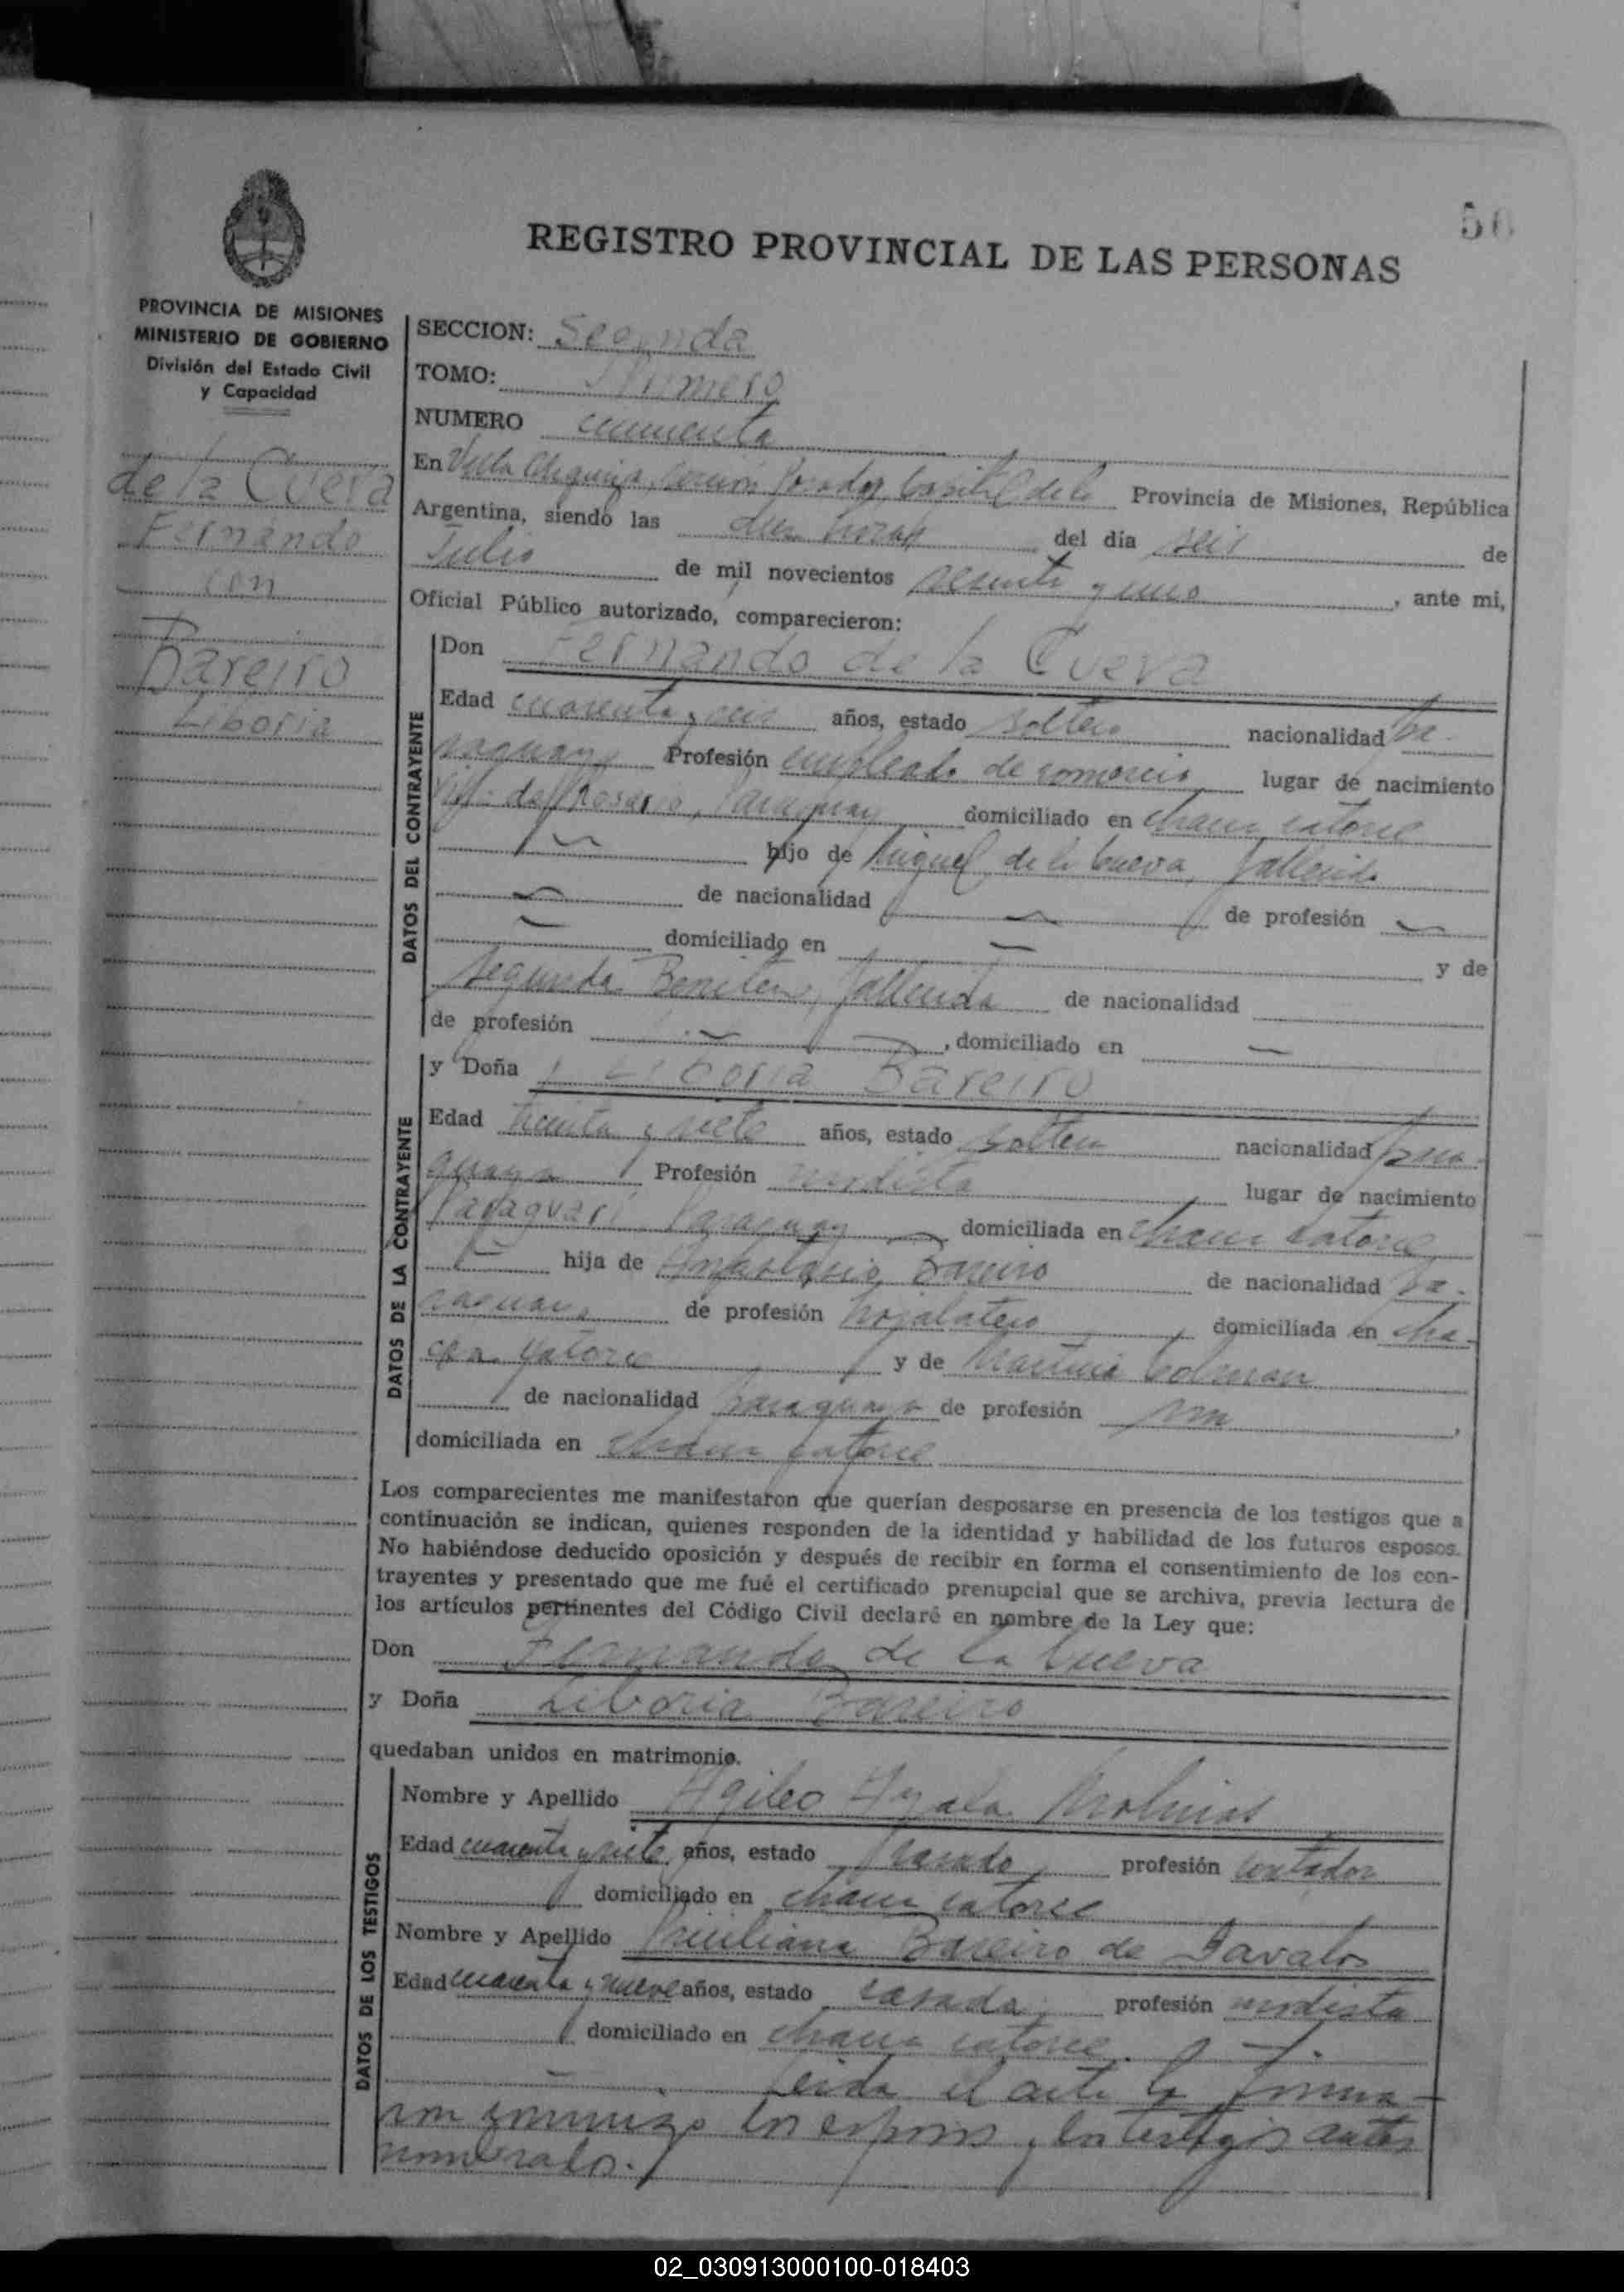 50
REGISTRO PROVINCIAL DE LAS PERSONAS
PROVINCIA DE MISIONES
MINISTERIO DE GOBIERNO
División del Estado Civil
y Capacidad
de la Cueva
Fernando
con
Bareiro
Liboria
SECCION: Segunda
TOMO: Primero
NUMERO cincuenta
En Villa Urquiza, sección Posadas, Capital de la Provincia de Misiones, República
Argentina, siendo las diez horas del día seis de
Julio de mil novecientos sesenta y uno, ante mi,
Oficial Público autorizado, comparecieron:
DATOS DEL CONTRAYENTE
Don Fernando de la Cueva
Edad cuarenta y seis años, estado soltero nacionalidad pa-
raguayo Profesión empleado de comercio lugar de nacimiento
Villa del Rosario, Paraguay domiciliado en chacra catorce
hijo de Miguel de la Cueva, fallecido
de nacionalidad de profesión
domiciliado en y de
Segunda Benitez, fallecida de nacionalidad
de profesión , domiciliado en
DATOS DE LA CONTRAYENTE
y Doña Liboria Bareiro
Edad treinta y siete años, estado soltera nacionalidad para-
guaya Profesión modista lugar de nacimiento
Paraguarí, Paraguay domiciliada en chacra catorce
hija de Bareiro de nacionalidad pa-
raguayo de profesión hojalatero domiciliada en cha-
cra catorce y de Martina Colman
de nacionalidad paraguaya de profesión
domiciliada en chacra catorce
Los comparecientes me manifestaron que querían desposarse en presencia de los testigos que a
continuación se indican, quienes responden de la identidad y habilidad de los futuros esposos.
No habiéndose deducido oposición y después de recibir en forma el consentimiento de los con-
trayentes y presentado que me fué el certificado prenupcial que se archiva, previa lectura de
los artículos pertinentes del Código Civil declaré en nombre de la Ley que:
Don Fernando de la Cueva
y Doña Liboria Bareiro
quedaban unidos en matrimonio.
DATOS DE LOS TESTIGOS
Nombre y Apellido Agileo Ayala Molinas
Edad cuarenta y siete años, estado casado profesión contador
domiciliado en chacra catorce
Nombre y Apellido Bareiro de Davalos
Edad cuarenta y nueve años, estado casada profesión modista
domiciliado en chacra catorce.
Leida el acta la firma-
ron conmigo los esposos y los testigos antes
nombrados.
02_030913000100-018403